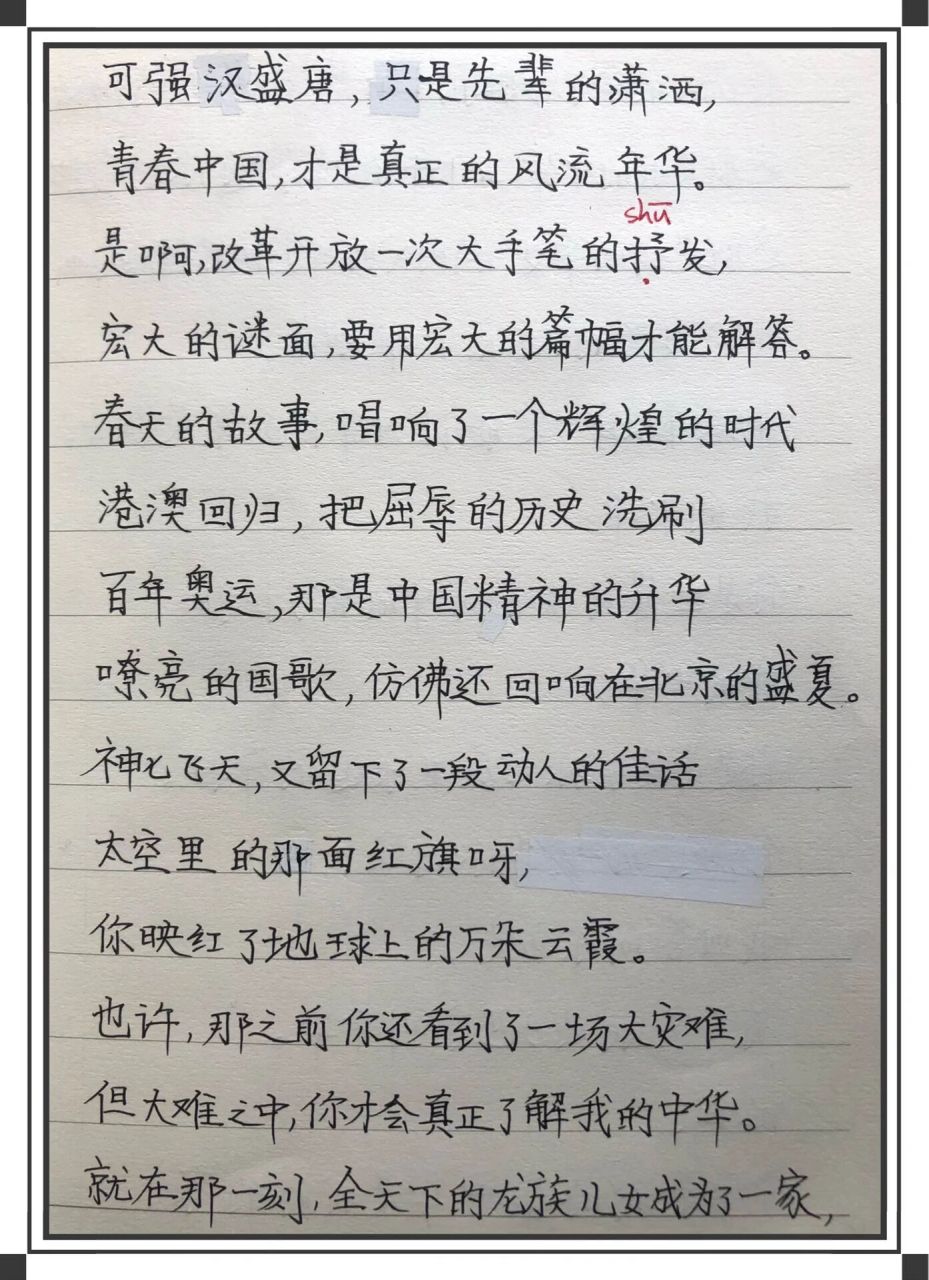 可强汉盛唐，只是先辈的潇洒，
青春中国，才是真正的风流年华。
shū
是啊，改革开放一次大手笔的抒发，
宏大的谜面，要用宏大的篇幅才能解答。
春天的故事，唱响了一个辉煌的时代
港澳回归，把屈辱的历史洗刷
百年奥运，那是中国精神的升华
嘹亮的国歌，仿佛还回响在北京的盛夏。
神七飞天，又留下了一段动人的佳话
太空里的那面红旗呀，
你映红了地球上的万朵云霞。
也许，那之前你还看到了一场大灾难，
但大难之中，你才会真正了解我的中华。
就在那一刻，全天下的龙族儿女成为了一家，